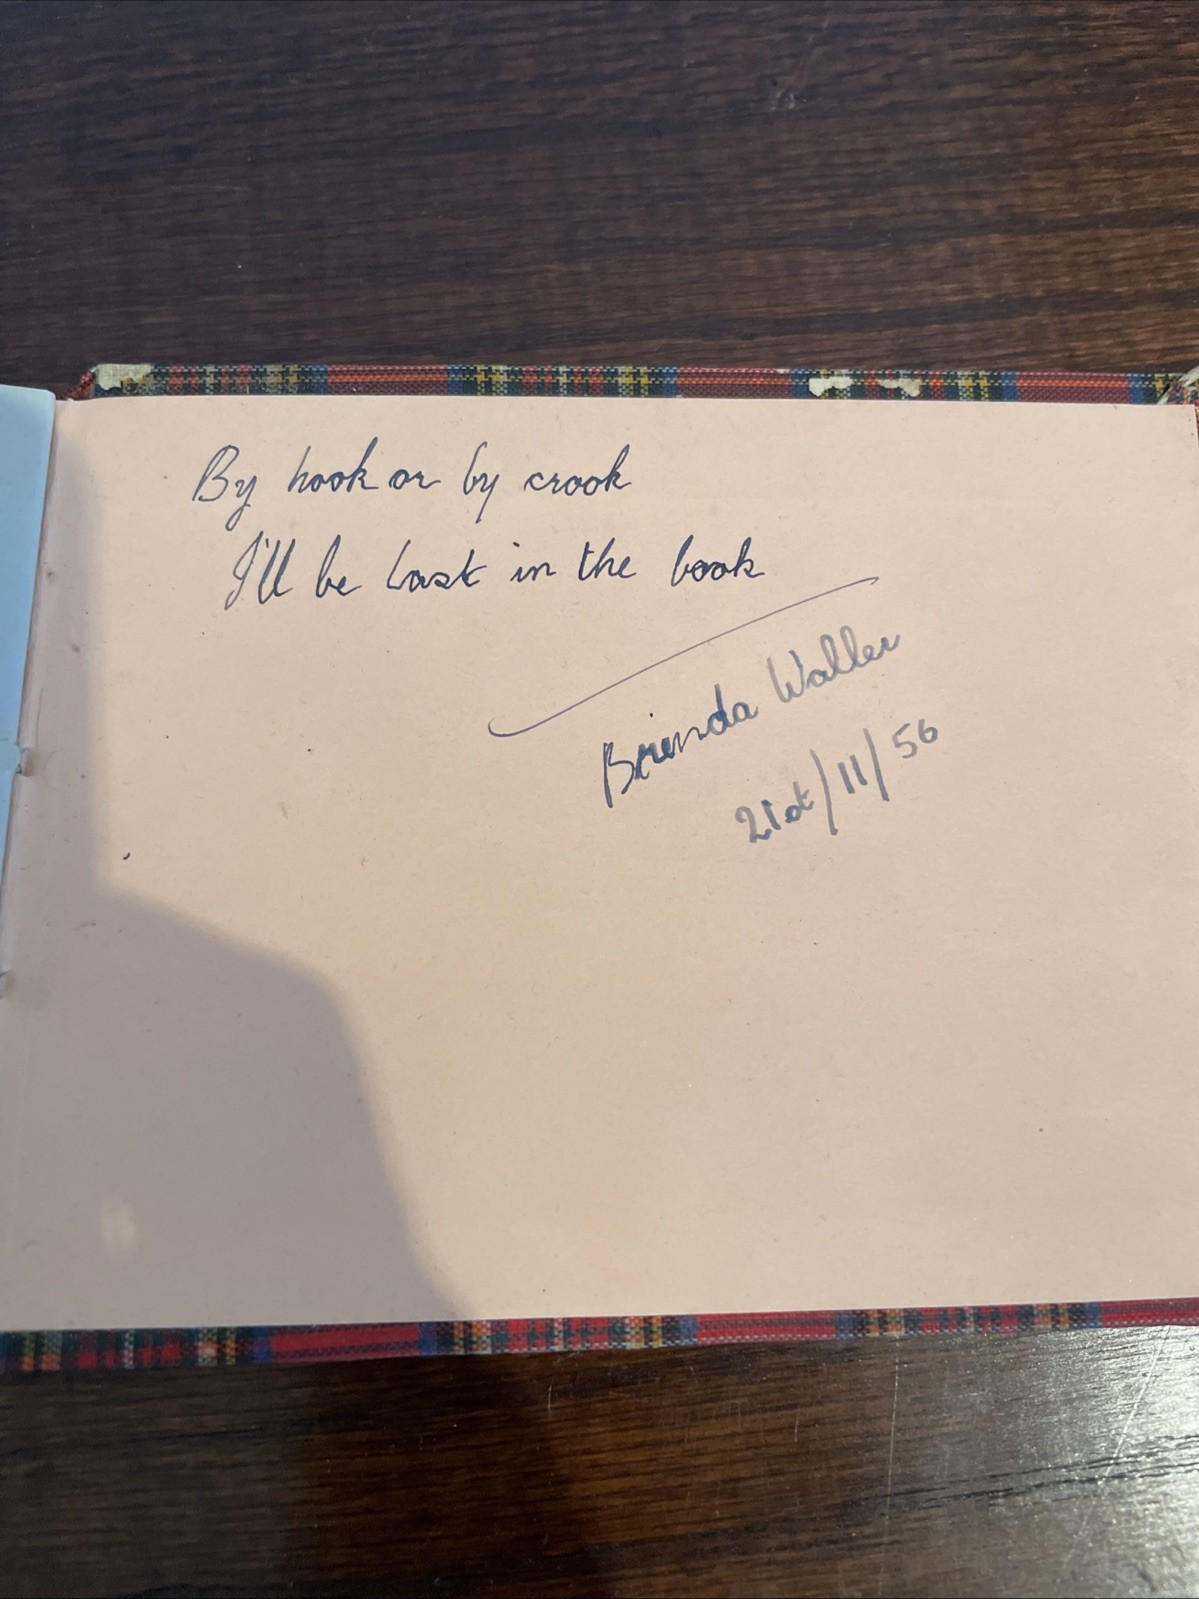 By hook or by crook
I'll be last in the book
Brenda Waller
21st/11/56